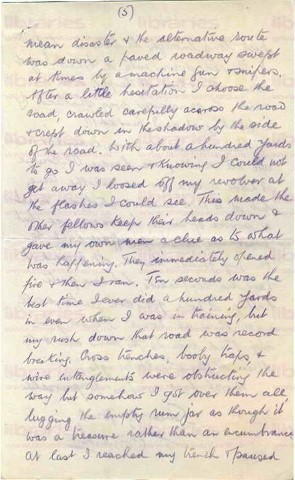 (5)
mean disaster & the alternative route
was down a paved roadway swept
at times by a machine gun & snipers.
After a little hesitation I choose the
road, crawled carefully across the road
& crept down in the shadow by the side
of the road. With about a hundred yards
to go I was seen & knowing I could not
get away I loosed off my revolver at
the flashes I could see. This made the
other fellows keep their heads down &
gave my own men a clue as to what
was happening. They immediately opened
fire & then I ran. Ten seconds was the
best time I ever did a hundred yards
in even when I was in training, but
my rush down that road was record
breaking. Cross trenches, booby traps, &
wire entanglements were obstructing the
way but somehow I got over them all,
lugging the empty rum jar as though it
was a treasure rather than an encumbrance
At last I reached my trench & paused